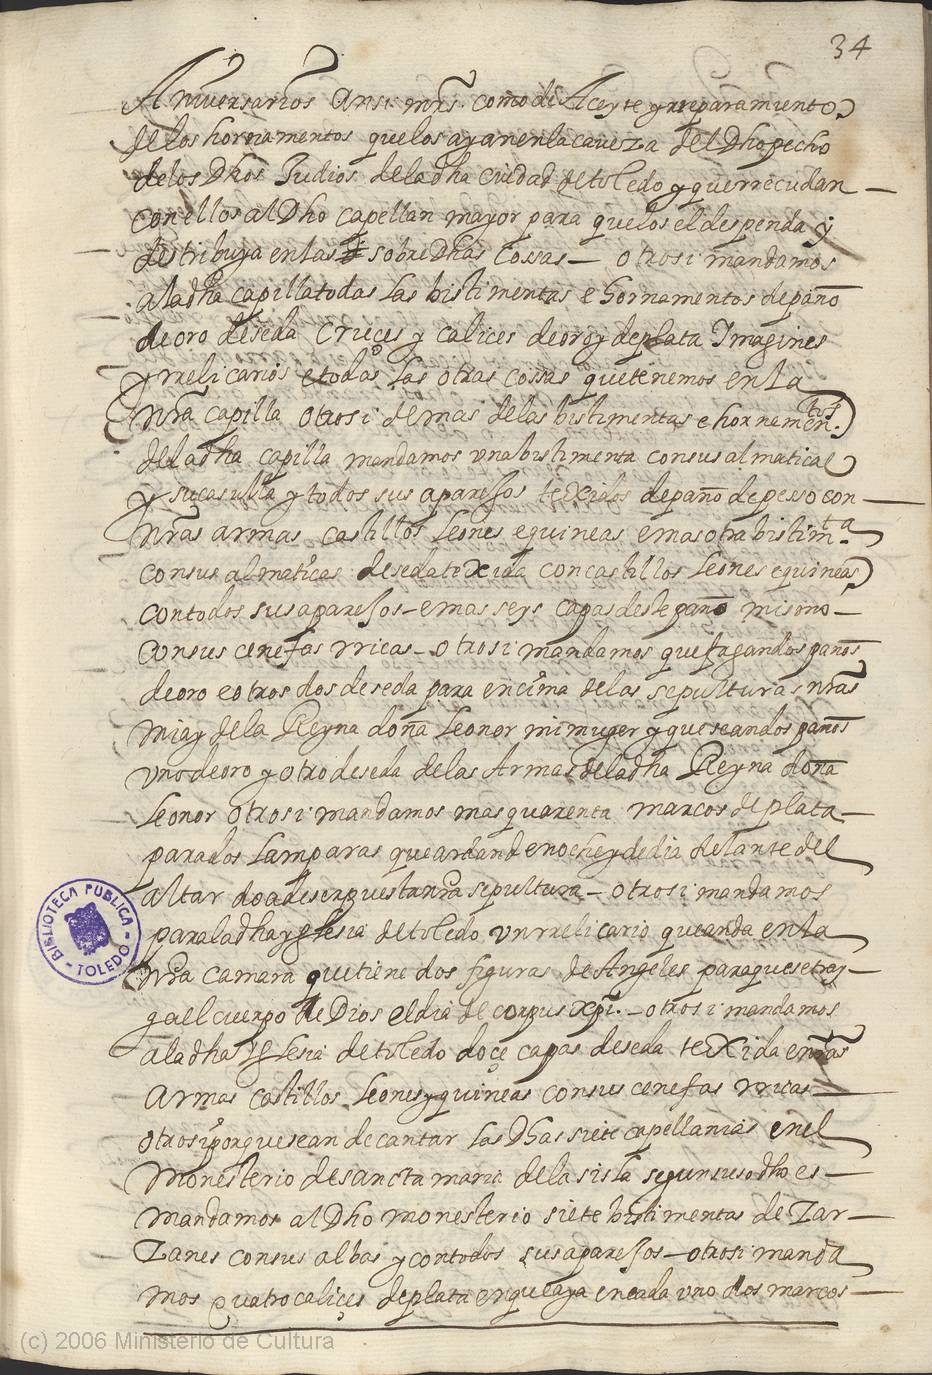 34
Aniversarios Ansi mrs. como de Aceyte y rreparamiento
de los hornamentos que los ayan en la caveza del Dho pecho
de los Dhos Judios de la dha ciudad de toledo y que rrecudan
con ellos al Dho capellan mayor para que los el despenda y
destribuya en las sobre Dhas Cossas — otrosi mandamos
a la dha capilla todas las bistimentas e hornamentos de paño
de oro de seda Cruces y calices de oro y de plata Imagines
y rrelicarios e todas las otras cossas que tenemos en la
nra capilla otrosi demas de las bistimentas e hornamentos.
de la dha capilla mandamos una bistimenta con sus almaticas
y su casulla y todos sus aparejos texidos de paño de pesso con
nras armas castillos Leones e quineas e mas otra bistimta
con sus almaticas de seda texida con castillos Leones e quineas
con todos sus aparejos — e mas seys capas deste paño mismo —
con sus cenefas rricas — otrosi mandamos que fagan dos paños
de oro e otros dos de seda para encima de las sepulturas nras
mia y de la Reyna doña Leonor mi muger y que sean dos paños
uno de oro y otro de seda de las Armas de la dha Reyna doña
Leonor otrosi mandamos mas quarenta marcos de plata —
para dos Lamparas que ardan de noche y de dia delante del
altar do a de ser puesta nra sepultura — otrosi mandamos
para la dha yglesia de toledo un rrelicario que anda en la
nra camara que tiene dos figuras de Angeles para que se tray-
ga el cuerpo de Dios el dia de corpus xpi. — otrosi mandamos
a la dha yglesia de toledo doçe capas de seda texida en nras
Armas castillos Leones y quineas con sus cenefas rricas —
otrosi porque sean de cantar las Dhas siete capellanias en el
Monesterio de sancta maria de la sisla segun suso dho es —
mandamos al Dho monesterio siete bistimentas de Zar—
Zanes con sus albas y con todos sus aparejos — otrosi manda
mos quatro caliçes de plata en que aya en cada uno dos marcos —
BIBLIOTECA PUBLICA - TOLEDO -
(c) 2006 Ministerio de Cultura